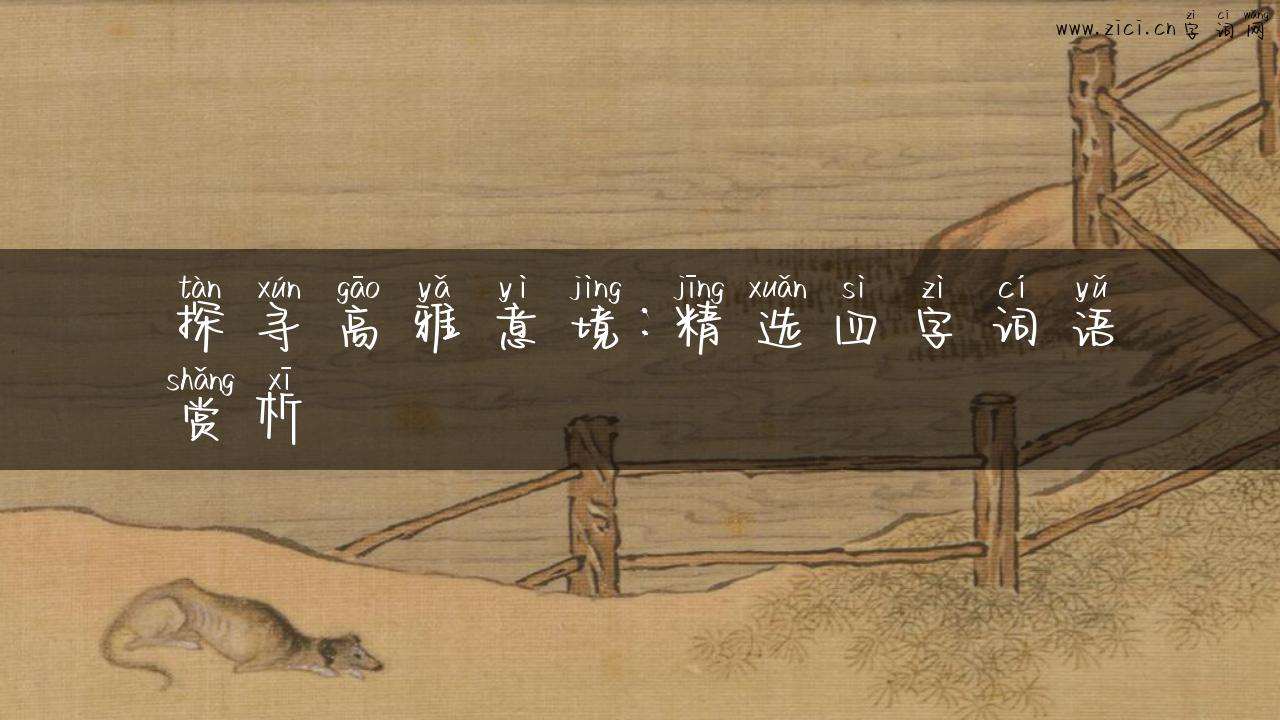 zì cí wǎng
www.zici.cn 字词网
tàn xún gāo yǎ yì jìng jīng xuǎn sì zì cí yǔ
探寻高雅意境：精选四字词语
shǎng xī
赏析